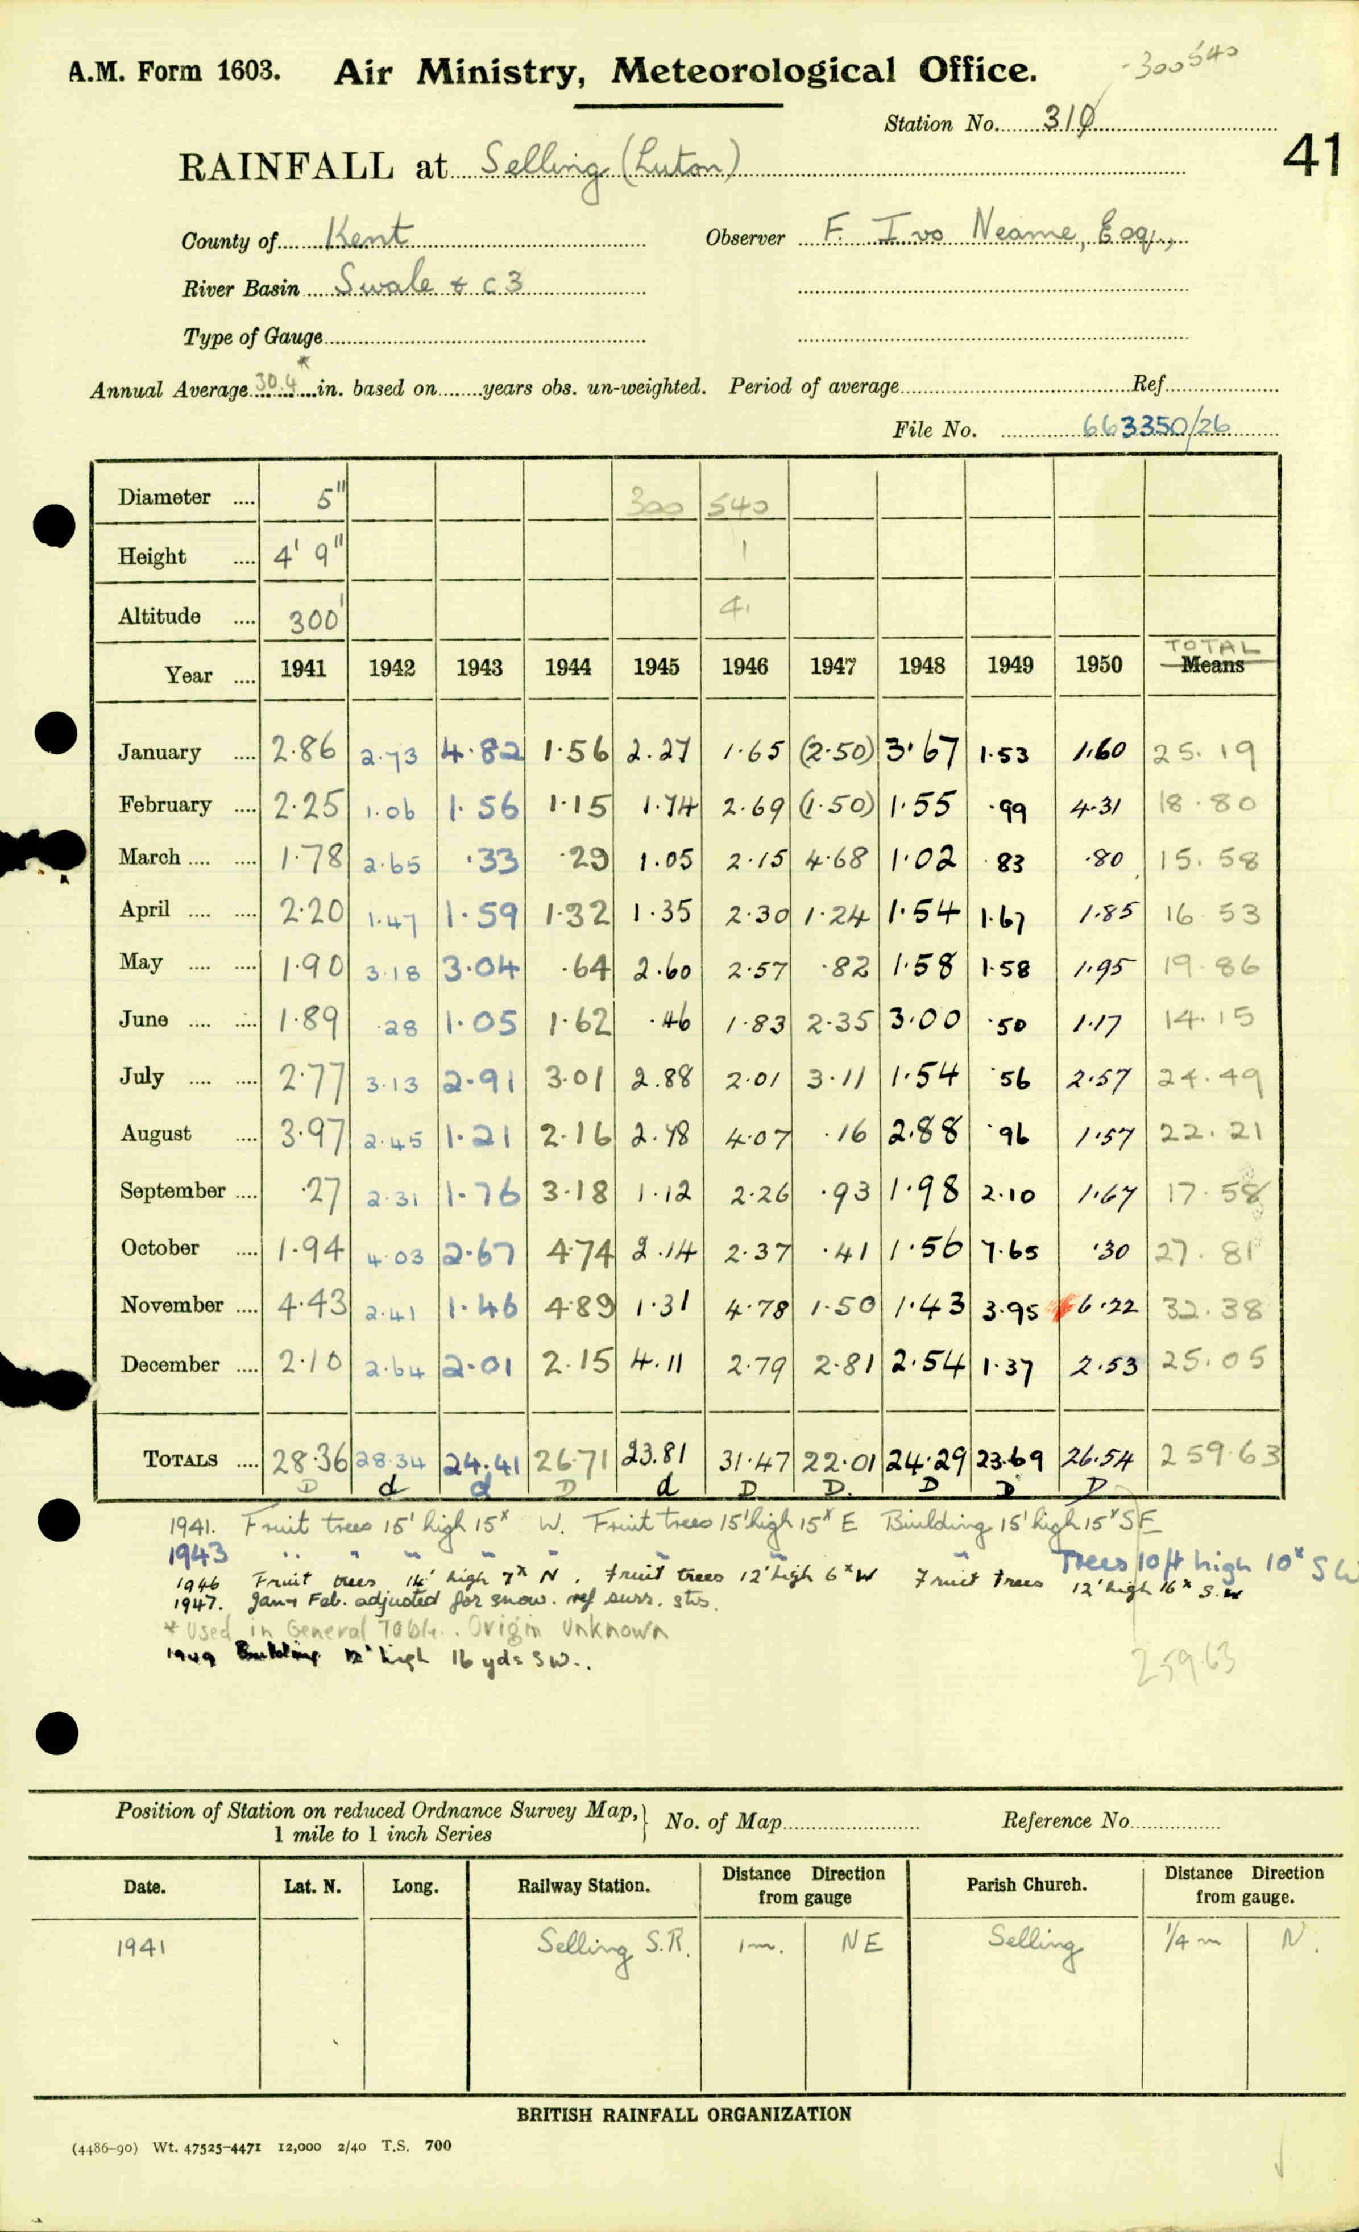 300540
A.M. Form 1603. Air Ministry, Meteorological Office.
Station No. 310
RAINFALL at Selling (Luton)
41
County of Kent Observer F. Ivo Neame, Esq.,
River Basin Swale & c 3
Type of Gauge
Annual Average 30.4* in. based on years obs. un-weighted. Period of average Ref.
File No. 663350/26
Diameter .... 5" 300 540
Height .... 4' 9" 1
Altitude .... 300' 41
Year .... 1941 1942 1943 1944 1945 1946 1947 1948 1949 1950 TOTAL Means
January .... 2.86 2.73 4.82 1.56 2.27 1.65 (2.50) 3.67 1.53 1.60 25.19
February .... 2.25 1.06 1.56 1.15 1.74 2.69 (1.50) 1.55 .99 4.31 18.80
March .... .... 1.78 2.65 .33 .29 1.05 2.15 4.68 1.02 .83 .80 15.58
April .... .... 2.20 1.47 1.59 1.32 1.35 2.30 1.24 1.54 1.67 1.85 16.53
May .... .... 1.90 3.18 3.04 .64 2.60 2.57 .82 1.58 1.58 1.95 19.86
June .... .... 1.89 .28 1.05 1.62 .46 1.83 2.35 3.00 .50 1.17 14.15
July .... .... 2.77 3.13 2.91 3.01 2.88 2.01 3.11 1.54 .56 2.57 24.49
August .... 3.97 2.45 1.21 2.16 2.78 4.07 .16 2.88 .96 1.57 22.21
September .... .27 2.31 1.76 3.18 1.12 2.26 .93 1.98 2.10 1.67 17.58
October .... 1.94 4.03 2.67 4.74 2.14 2.37 .41 1.56 7.65 .30 27.81
November .... 4.43 2.41 1.46 4.89 1.31 4.78 1.50 1.43 3.95 6.22 32.38
December .... 2.10 2.64 2.01 2.15 4.11 2.79 2.81 2.54 1.37 2.53 25.05
TOTALS .... 28.36 28.34 24.41 26.71 23.81 31.47 22.01 24.29 23.69 26.54 259.63
D d d D d D D. D D D
1941. Fruit trees 15' high 15x W. Fruit trees 15' high 15x E Building 15' high 15x SE
1943 " " " " " " " Trees 10ft high 10x SW
1946 Fruit trees 14' high 7x N. Fruit trees 12' high 6x W Fruit Trees 12' high 16x S.W
1947. Jan & Feb. adjusted for snow. ref surr. stns.
* Used in General Table. Origin Unknown
1949 Building 12' high 16 yds SW.
259.63
Position of Station on reduced Ordnance Survey Map, 1 mile to 1 inch Series } No. of Map Reference No.
Date. Lat. N. Long. Railway Station. Distance Direction from gauge Parish Church. Distance Direction from gauge.
1941 Selling S.R. 1m. NE Selling 1/4 m N.
BRITISH RAINFALL ORGANIZATION
(4486-90) Wt. 47525-4471 12,000 2/40 T.S. 700